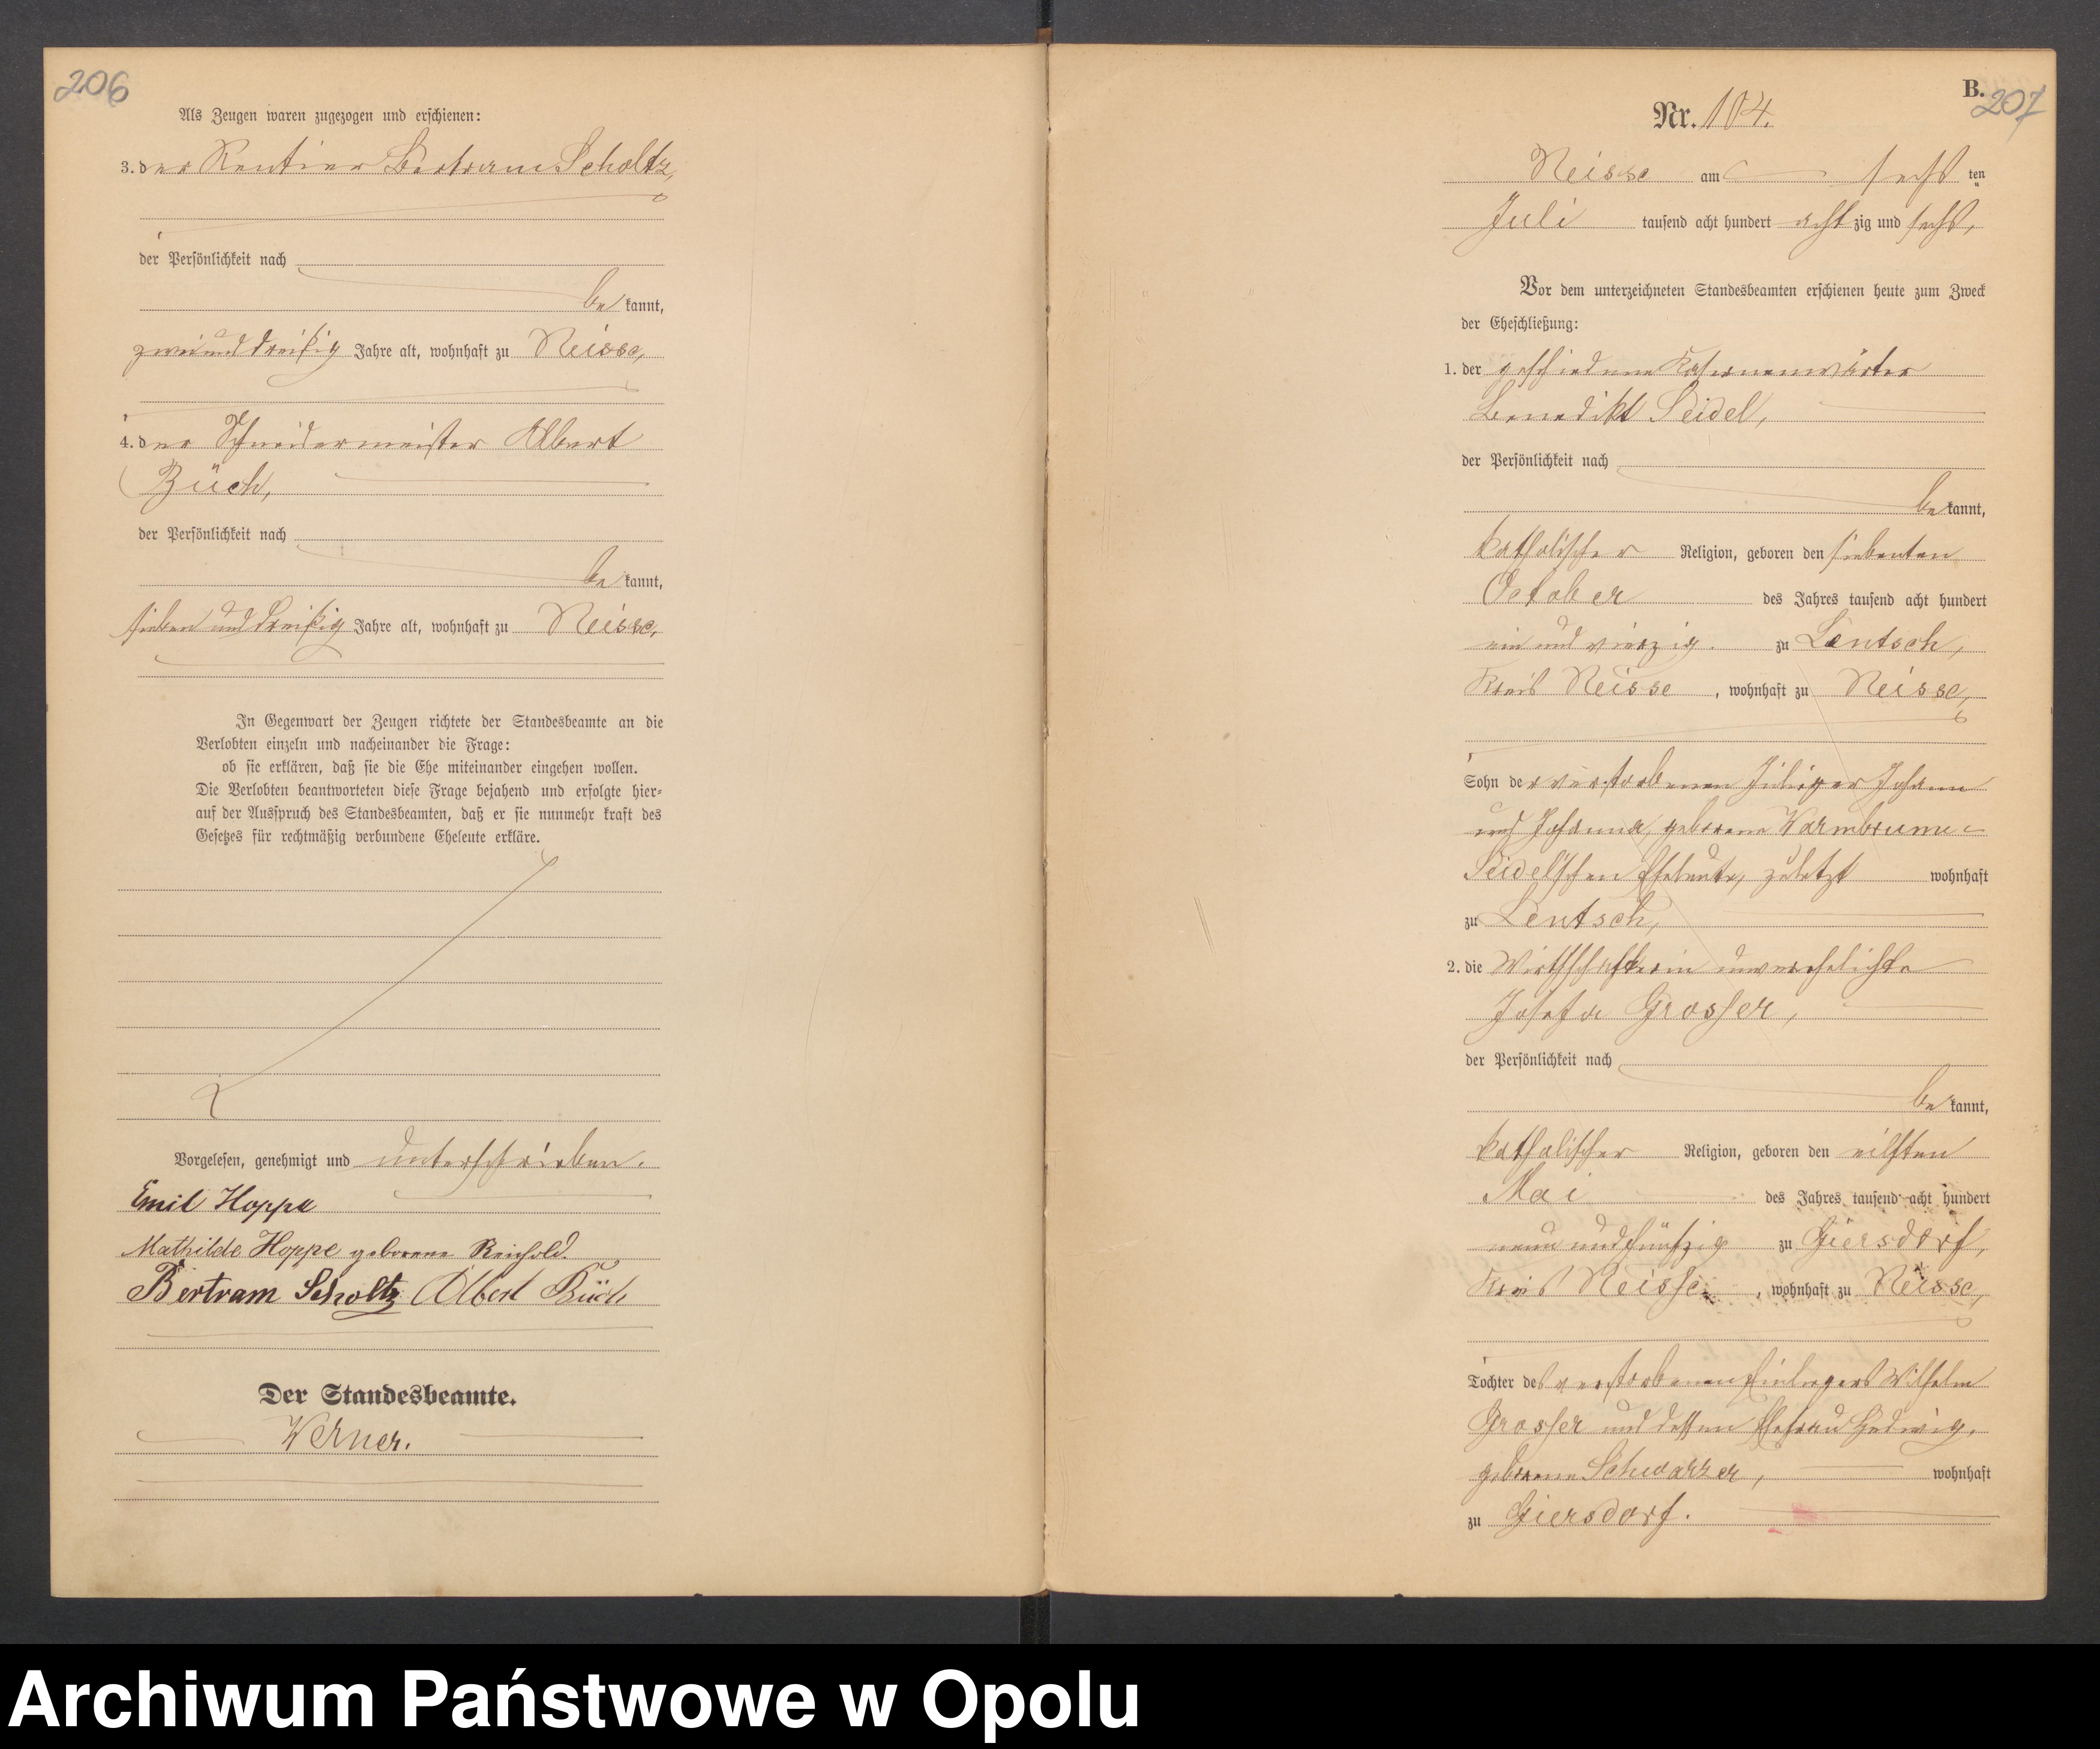 206
Als Zeugen waren zugezogen und erschienen:
3. der Rentier Bertram Scholtz,
der Persönlichkeit nach
be kannt,
zweiunddreißig Jahre alt, wohnhaft zu Neisse,
4. der Schneidermeister Albert
Büch,
der Persönlichkeit nach
be kannt,
siebenunddreißig Jahre alt, wohnhaft zu Neisse,
In Gegenwart der Zeugen richtete der Standesbeamte an die
Verlobten einzeln und nacheinander die Frage:
ob sie erklären, daß sie die Ehe miteinander eingehen wollen.
Die Verlobten beantworteten diese Frage bejahend und erfolgte hier-
auf der Ausspruch des Standesbeamten, daß er sie nunmehr kraft des
Gesetzes für rechtmäßig verbundene Eheleute erkläre.
Vorgelesen, genehmigt und unterschrieben.
Emil Hoppe
Mathilde Hoppe geborene
Bertram Scholtz Albert Büch
Der Standesbeamte.
Werner.
B.
207
Nr. 104.
Neisse am sechs ten
Juli tausend acht hundert acht zig und sechs,
Vor dem unterzeichneten Standesbeamten erschienen heute zum Zweck
der Eheschließung:
1. der geschiedene Kasernenwärter
Benedikt Seidel,
der Persönlichkeit nach
be kannt,
katholischer Religion, geboren den siebenten
October des Jahres tausend acht hundert
ein und vierzig zu Lentsch,
Kreis Neisse, wohnhaft zu Neisse,
Sohn der verstorbenen Johann
und Johanna, geborene Warmbrunn-
Seidel'schen Eheleute, zuletzt wohnhaft
zu Lentsch,
2. die Wirthschafterin unverehelichte
Josefa Grosser,
der Persönlichkeit nach
be kannt,
katholischer Religion, geboren den eilften
Mai des Jahres tausend acht hundert
neun und fünfzig zu Giersdorf,
Kreis Neisse, wohnhaft zu Neisse,
Tochter des verstorbenen Einliegers Wilhelm
Grosser und dessen Ehefrau Hedwig,
geborene Schwarzer, wohnhaft
zu Giersdorf.
Archiwum Państwowe w Opolu